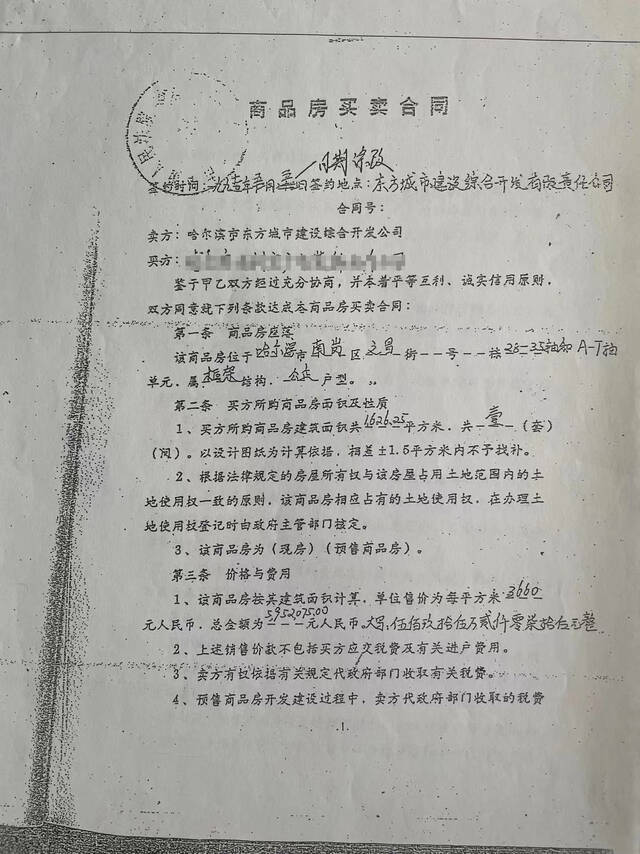 商品房买卖合同
日期涂改
签约时间：九五年 月 日签约地点：东方城市建设综合开发有限责任公司
合同号：
卖方：哈尔滨市东方城市建设综合开发公司
买方：
鉴于甲乙双方经过充分协商，并本着平等互利、诚实信用原则，
双方同意就下列条款达成本商品房买卖合同：
第一条 商品房座落
该商品房位于哈尔滨市南岗区 街--号--栋28-35轴和A-T轴
单元，属框架结构，公建户型。
第二条 买方所购商品房面积及性质
1、买方所购商品房建筑面积共1626.25平方米，共壹（套）
（间）。以设计图纸为计算依据，相差±1.5平方米内不予找补。
2、根据法律规定的房屋所有权与该房屋占用土地范围内的土
地使用权一致的原则，该商品房相应占有的土地使用权，在办理土
地使用权登记时由政府主管部门核定。
3、该商品房为（现房）（预售商品房）。
第三条 价格与费用
1、该商品房按其建筑面积计算，单位售价为每平方米3660
元人民币，总金额为5952075.00元人民币。大写：伍佰玖拾伍万贰仟零柒拾伍元整
2、上述销售价款不包括买方应交税费及有关进户费用。
3、卖方有权依据有关规定代政府部门收取有关税费。
4、预售商品房开发建设过程中，卖方代政府部门收取的税费
.1.